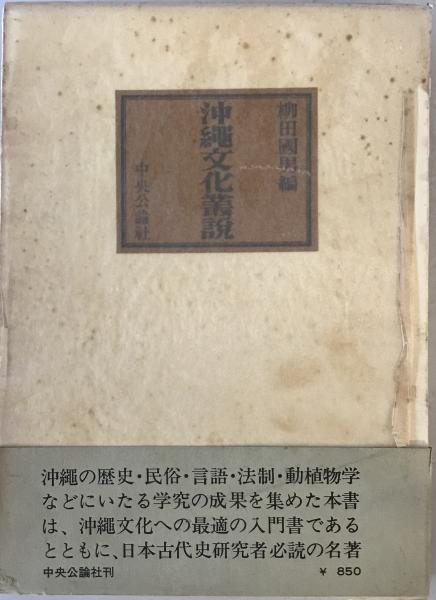 柳田國男編
沖繩文化叢説
中央公論社
沖繩の歴史・民俗・言語・法制・動植物学
などにいたる学究の成果を集めた本書
は、沖繩文化への最適の入門書である
とともに、日本古代史研究者必読の名著
中央公論社刊 ¥ 850